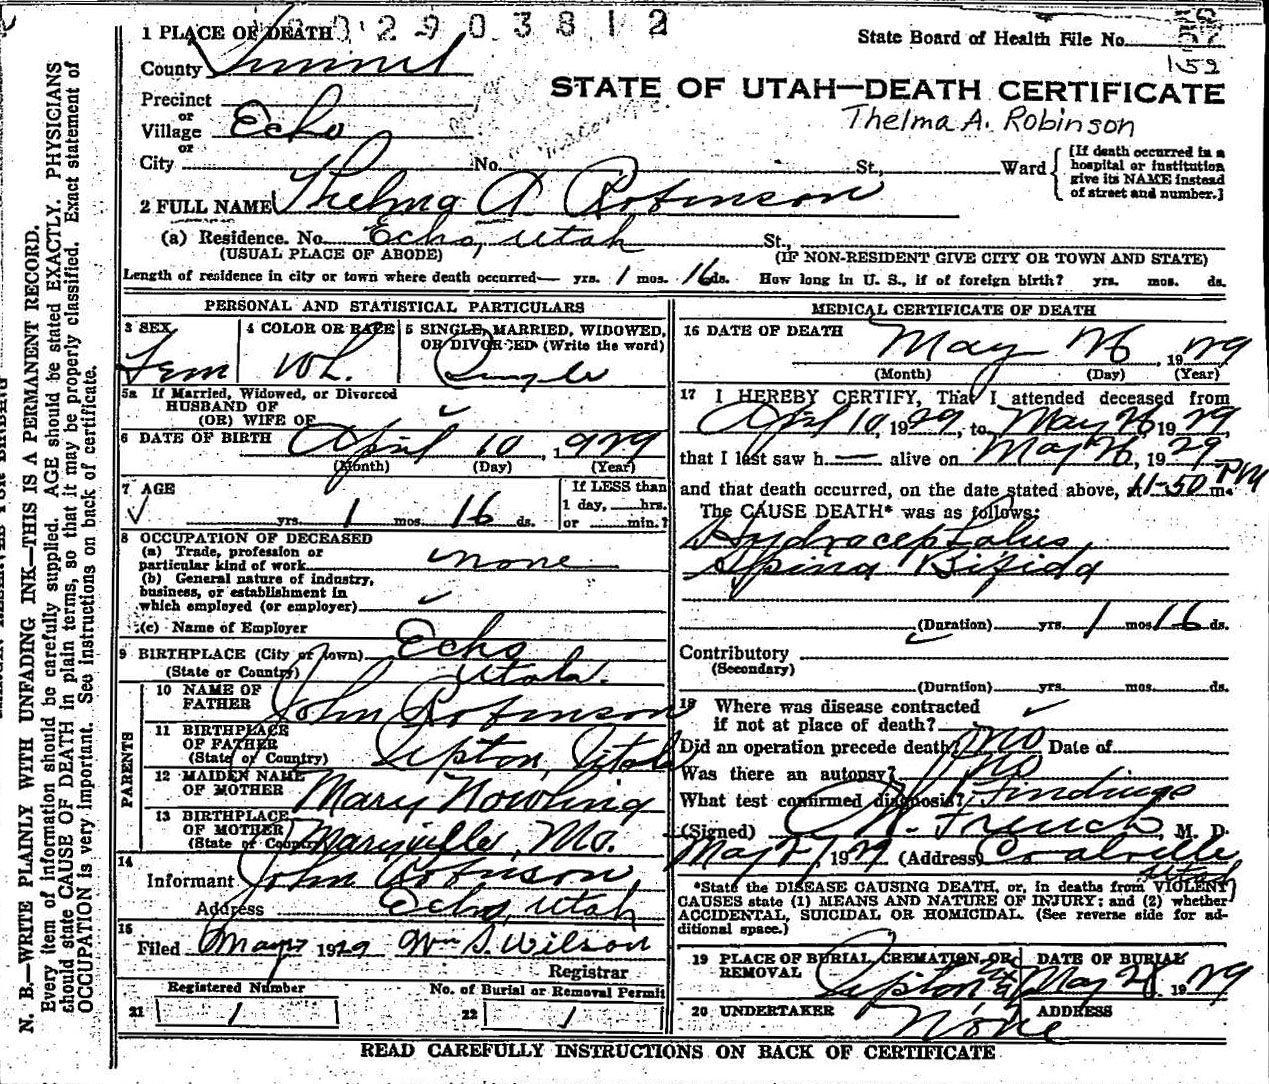 2903812
1 PLACE OF DEATH
State Board of Health File No.
152
County Summit
STATE OF UTAH—DEATH CERTIFICATE
Precinct
or
Village Echo
Thelma A. Robinson
or
City No. St., Ward
[If death occurred in a
hospital or institution
give its NAME instead
of street and number.]
2 FULL NAME Thelma A. Robinson
(a) Residence. No. Echo, Utah St.,
(USUAL PLACE OF ABODE) (IF NON-RESIDENT GIVE CITY OR TOWN AND STATE)
Length of residence in city or town where death occurred— yrs. 1 mos. 16 ds. How long in U. S., if of foreign birth? yrs. mos. ds.
PERSONAL AND STATISTICAL PARTICULARS
3 SEX 4 COLOR OR RACE 5 SINGLE, MARRIED, WIDOWED,
OR DIVORCED (Write the word)
Fem Wh. Single
5a If Married, Widowed, or Divorced
HUSBAND OF
(OR) WIFE OF
6 DATE OF BIRTH April 10, 1929
(Month) (Day) (Year)
7 AGE If LESS than
1 day, hrs.
yrs. 1 mos. 16 ds. or min.?
8 OCCUPATION OF DECEASED
(a) Trade, profession or
particular kind of work none
(b) General nature of industry,
business, or establishment in
which employed (or employer)
(c) Name of Employer
9 BIRTHPLACE (City or town) Echo
(State or Country) Utah.
PARENTS
10 NAME OF
FATHER John Robinson
11 BIRTHPLACE
OF FATHER
(State or Country) Upton, Utah
12 MAIDEN NAME
OF MOTHER Mary Nowling
13 BIRTHPLACE
OF MOTHER
(State or Country) Maryville, Mo.
14
Informant John Robinson
Address Echo, Utah
15
Filed May 27 1929 Wm S. Wilson
Registrar
Registered Number No. of Burial or Removal Permit
21 1 22 1
MEDICAL CERTIFICATE OF DEATH
16 DATE OF DEATH
May 26, 1929
(Month) (Day) (Year)
17 I HEREBY CERTIFY, That I attended deceased from
April 10, 1929, to May 26 1929,
that I last saw h — alive on May 26, 1929
and that death occurred, on the date stated above, at 11-50 PM m.
The CAUSE DEATH* was as follows:
Hydracephalus,
Spina Bifida
(Duration) yrs. 1 mos. 16 ds.
Contributory
(Secondary)
(Duration) yrs. mos. ds.
18 Where was disease contracted
if not at place of death?
Did an operation precede death? no Date of
Was there an autopsy? no
What test confirmed diagnosis? Findings
(Signed) French, M. D.
May 27, 1929 (Address) Coalville
Utah
*State the DISEASE CAUSING DEATH, or, in deaths from VIOLENT
CAUSES state (1) MEANS AND NATURE OF INJURY; and (2) whether
ACCIDENTAL, SUICIDAL OR HOMICIDAL. (See reverse side for ad-
ditional space.)
19 PLACE OF BURIAL, CREMATION, OR
REMOVAL DATE OF BURIAL
Upton, Utah May 28, 1929
20 UNDERTAKER ADDRESS
None
READ CAREFULLY INSTRUCTIONS ON BACK OF CERTIFICATE
N. B.—WRITE PLAINLY WITH UNFADING INK—THIS IS A PERMANENT RECORD.
Every item of information should be carefully supplied. AGE should be stated EXACTLY. PHYSICIANS
should state CAUSE OF DEATH in plain terms, so that it may be properly classified. Exact statement of
OCCUPATION is very important. See instructions on back of certificate.